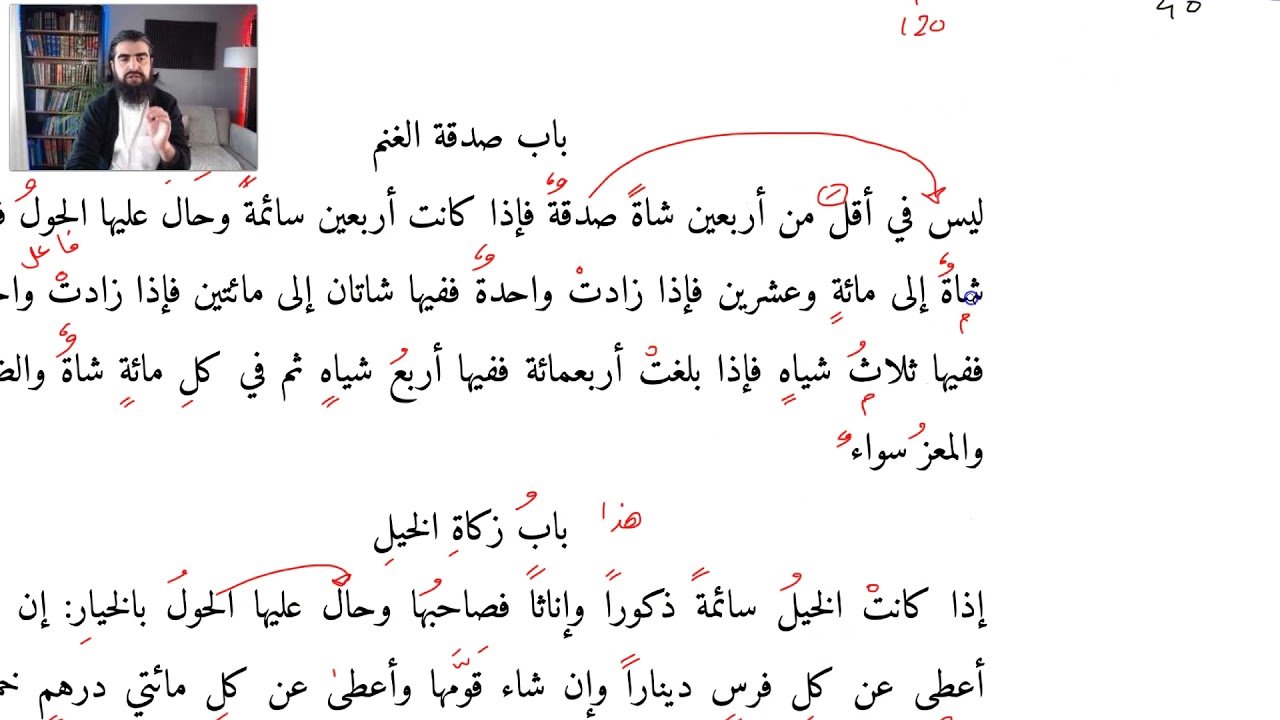 40
120
باب صدقة الغنم
ليسَ في أقلَّ من أربعين شاةً صدقةٌ فإذا كانت أربعين سائمةً وحَالَ عليها الحولُ
فاعل
شاةٌ إلى مائةٍ وعشرين فإذا زادتْ واحدةٌ ففيها شاتان إلى مائتين فإذا زادتْ
م
ففيها ثلاثُ شياهٍ فإذا بلغتْ أربعمائة ففيها أربعُ شياهٍ ثم في كلِ مائةٍ شاةٌ
م
والمعزُ سواءٌ
هذا بابُ زكاةِ الخيلِ
إذا كانتْ الخيلُ سائمةً ذكوراً وإناثاً فصاحبُها وحالَ عليها الحولُ بالخيارِ: إن
أعطى عن كلِ فرسٍ ديناراً وإن شاء قَوَّمَها وأعطىٰ عن كلِ مائتي درهمٍ